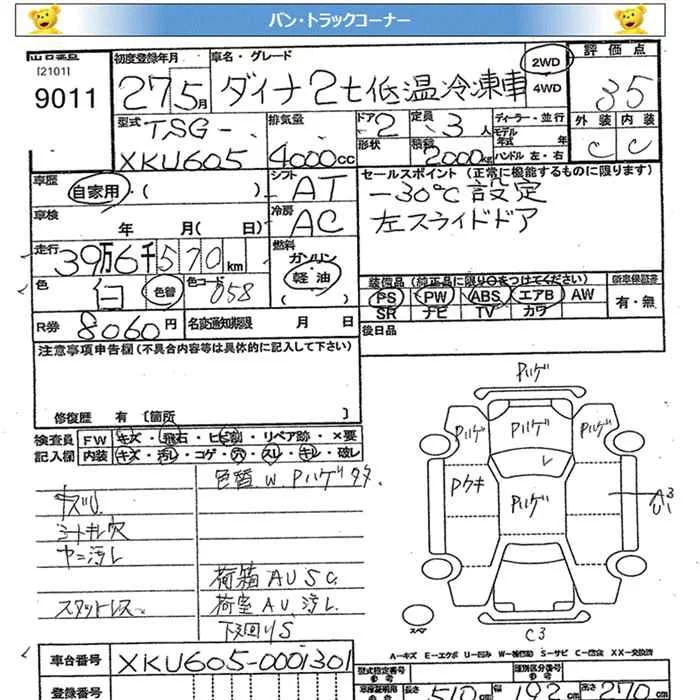 バン・トラックコーナー
出品番号
[2101]
9011
初度登録年月
27 5月
車名・グレード
ダイナ 2t低温冷凍車
2WD
4WD
評価点
3.5
外装 内装
C C
型式
TSG-
XKU605
排気量
4000cc
ドア 2
形状
定員 3人
積載
2000kg
ディーラー・並行
モデル年式 年
ハンドル 左・右
車歴
自家用 ( )
シフト
AT
セールスポイント (正常に機能するものに限ります)
-30℃設定
左スライドドア
車検
年 月( 日)
冷房
AC
走行
39万6千570km
燃料
ガソリン
軽油
( )
色
白 色替
色コード
058
装備品 (純正品に限り○をつけてください)
PS PW ABS エアB AW
SR ナビ TV カワ
新車保証書
有・無
R券 8060円
名変通知期限 月 日
後日品
注意事項申告欄 (不具合内容等は具体的に記入して下さい)
修復歴 有 〔箇所 〕
検査員
記入欄
FW キズ・飛石・ヒビ割・リペア跡・×要
内装 キズ・汚レ・コゲ・穴・スレ・キレ・破レ
色替 W Pハゲ タタ
シートキレ穴
ヤニ汚レ
スタットレス
荷箱 A U S C
荷室 A U 汚レ
下廻りS
Pハゲ
Pハゲ
Pハゲ
Pハゲ
Pハゲ
A3
U1
C3
スペア
A－キズ E－エクボ U－凹み W－補修跡 S－サビ C－腐食 XX－交換済
車台番号
XKU605-0001301
登録番号
型式指定番号
参考
類別区分番号
参考
長さ 510cm
幅 192cm
高さ 270cm